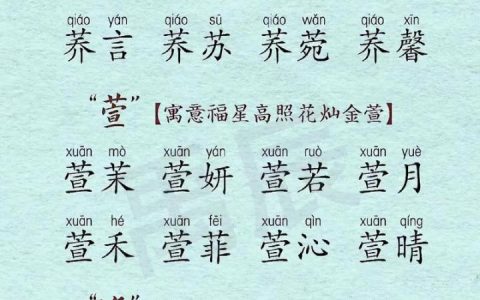 qiáo yán qiáo sū qiáo wǎn qiáo xīn
荞言 荞苏 荞菀 荞馨
“萱”【寓意福星高照花灿金萱】
xuān mò xuān yán xuān ruò xuān yuè
萱茉 萱妍 萱若 萱月
xuān hé xuān fēi xuān qìn xuān qíng
萱禾 萱菲 萱沁 萱晴